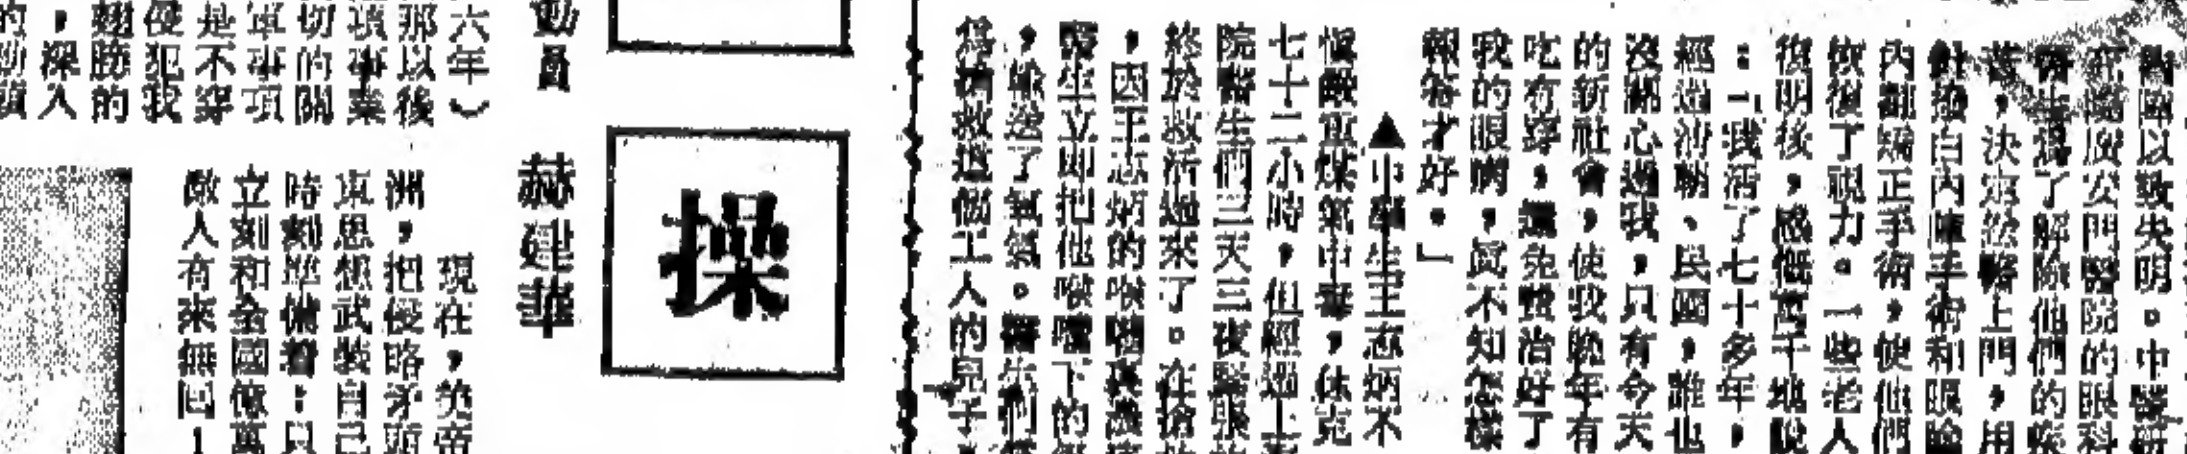 醫障以致失明。中醫研
究院廣安門醫院的眼科
醫生爲了解除他們的疾
苦，決定然醫上門，用
針撥白內障手術和眼瞼
內翻矯正手術，使他們
恢復了視力。一些老人
復明後，感慨萬千地說
：「我活了七十多年，
經過淸朝、民國，誰也
沒關心過我，只有今天
的新社會，使我晚年有
吃有穿，還免費治好了
我的眼睛，真不知怎樣
報答才好。」
▲中學生王志炳不
慎嚴重煤氣中毒，休克
七十二小時，但經過
院醫生們三天三夜緊張
終於救活過來了。在搶
，因王志炳的喉嚨
醫生立即把他喉嚨下的
，輸送了氧氣。醫生們
爲搶救這個工人的兒子
操
動員 赫建華
六年）
那以後
項事業
切的關
軍事項
是不穿
侵犯我
翅膀的
，深入
的
現在，
洲，把侵略矛頭
東思想武裝自己
時刻準備着：只
立刻和全國億萬
敵人有來無回！